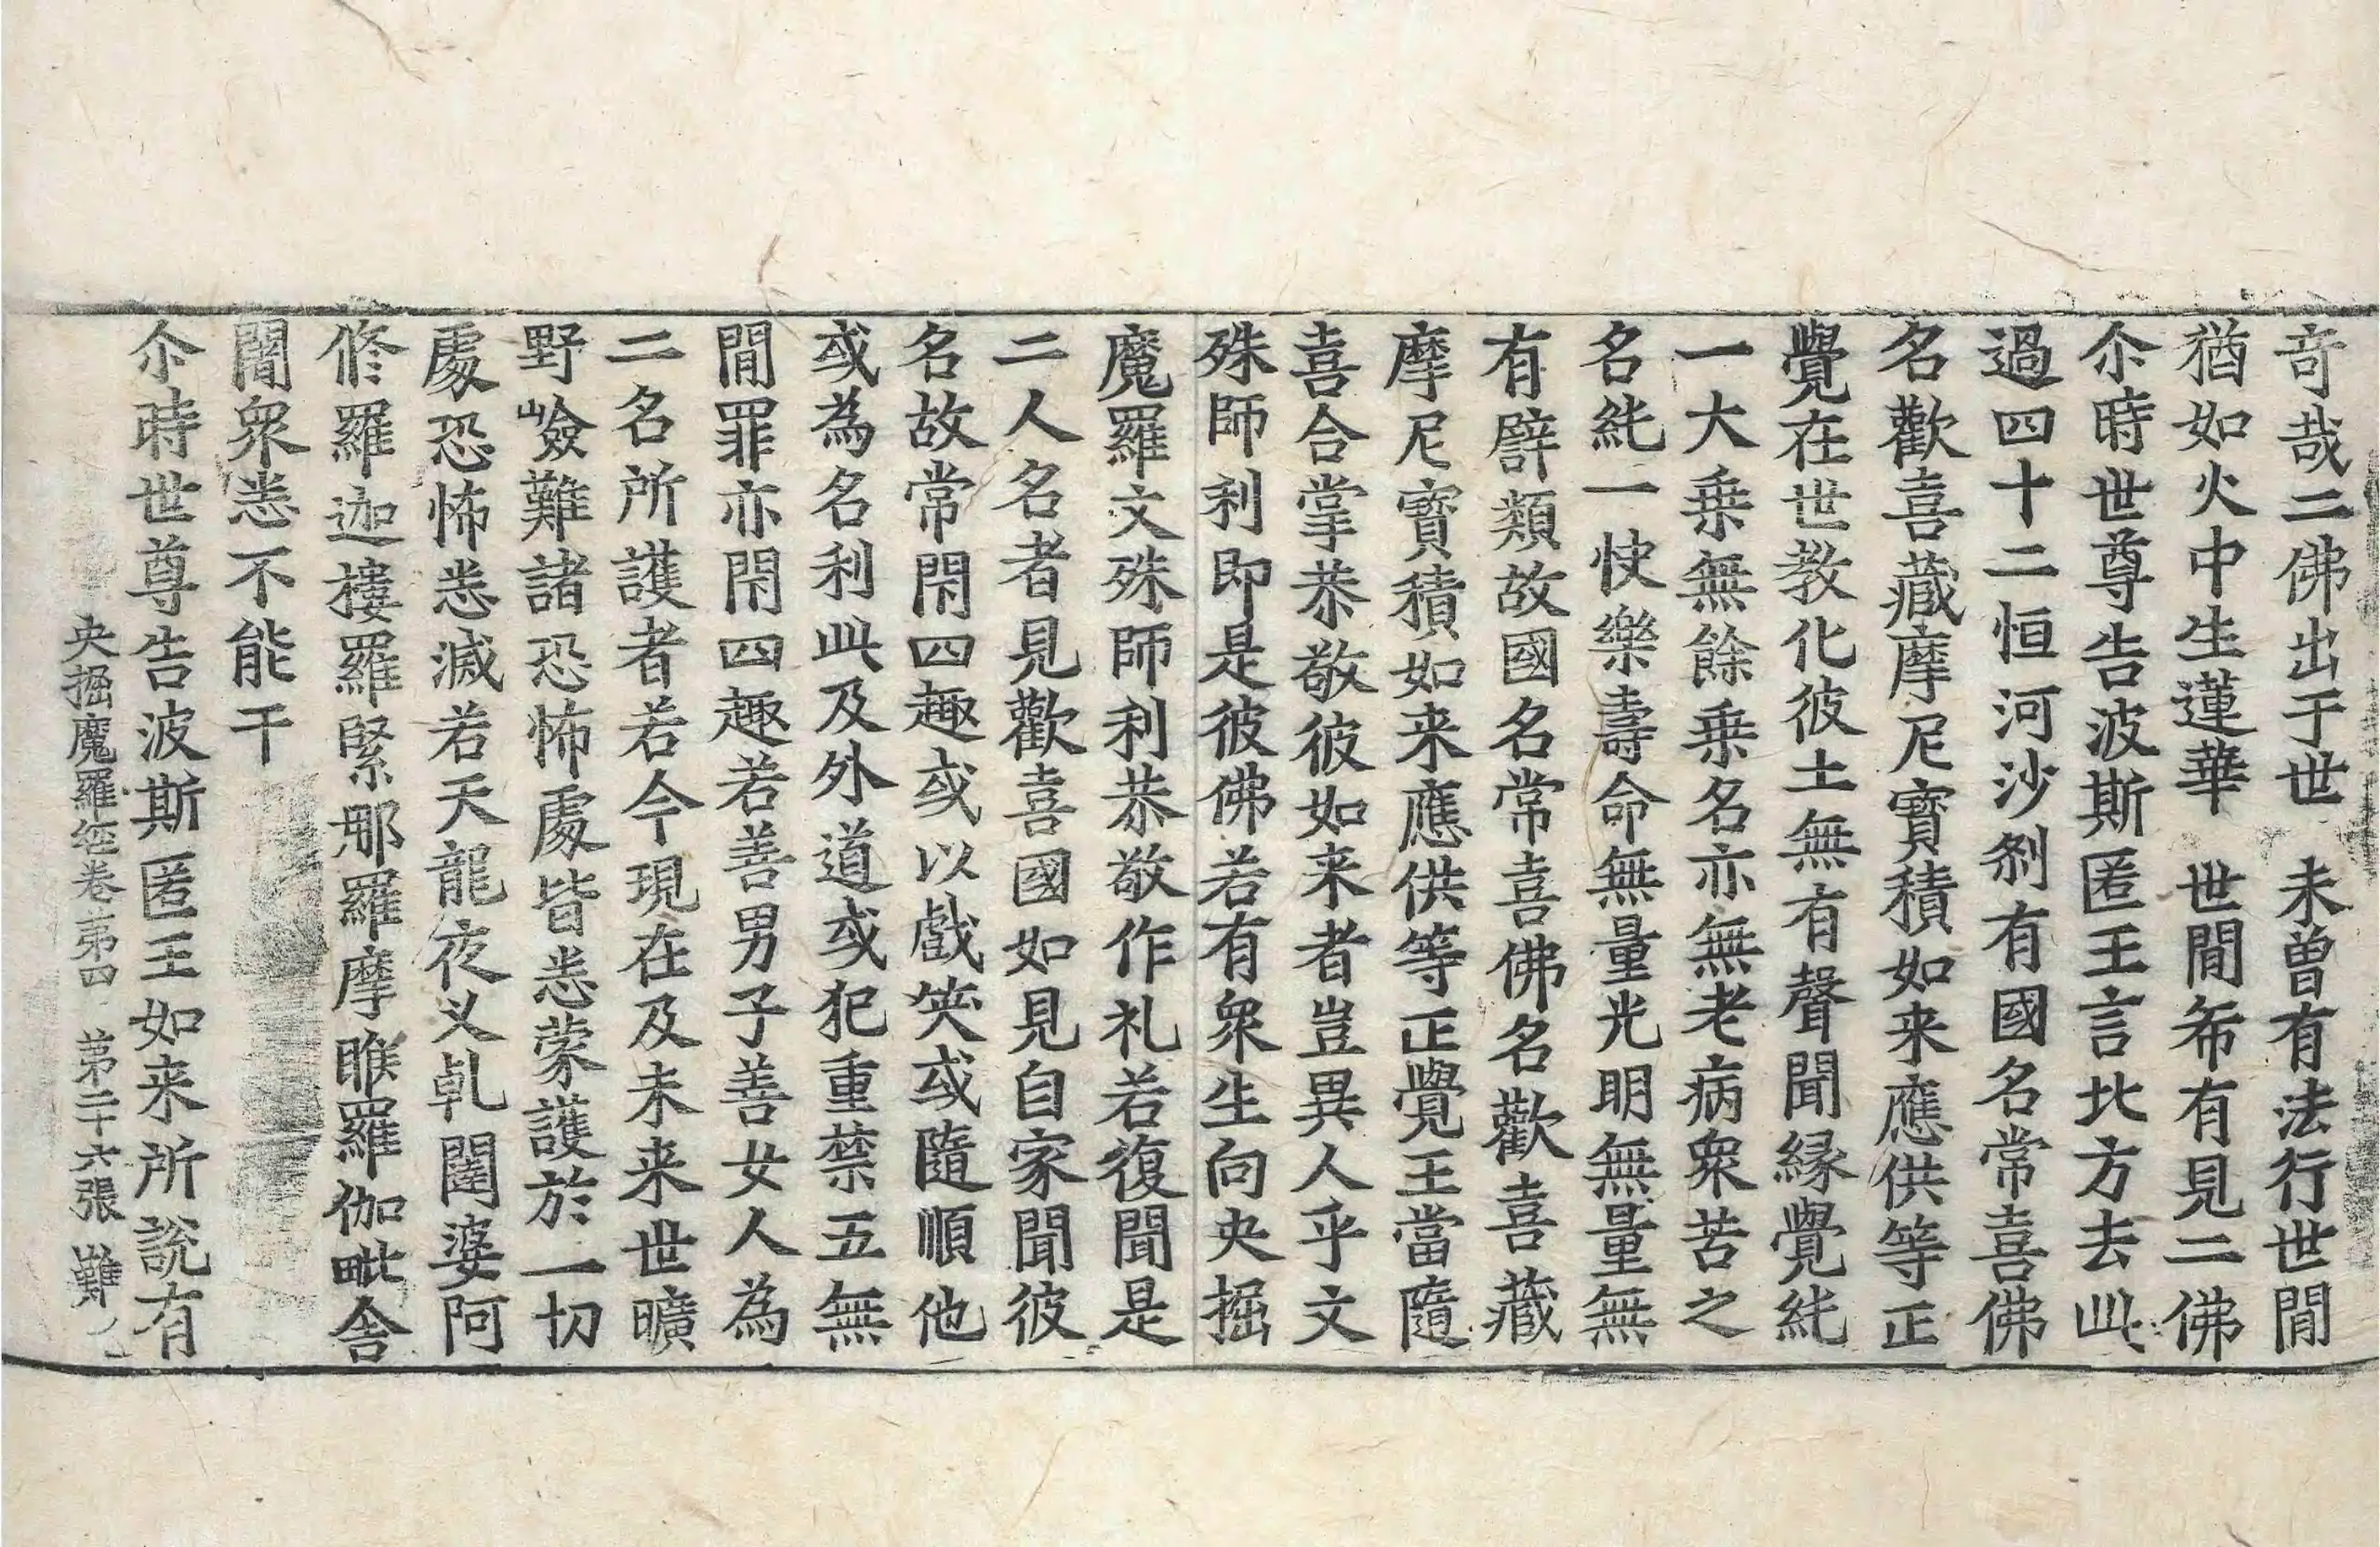 竒㢤二佛出于世　未曽有法行世間
猶如火中生蓮華　世間希有見二佛
尒時世尊告波斯匿王言北方去此
過四十二恒河沙刹有國名常喜佛
名歡喜藏摩尼寶積如来應供等正
覺在世教化彼土無有聲聞縁覺純
一大乗無餘乗名亦無老病衆苦之
名純一快樂壽命無量光明無量無
有譬類故國名常喜佛名歡喜藏
摩尼寶積如来應供等正覺王當隨
喜合掌恭敬彼如来者豈異人乎文
殊師利即是彼佛若有衆生向央掘
魔羅文殊師利恭敬作礼若復聞是
二人名者見歡喜國如見自家聞彼
名故常閇四趣或以戲笑或隨順他
或為名利此及外道或犯重禁五無
間罪亦閇四趣若善男子善女人為
二名所護者若今現在及未来世曠
野嶮難諸恐怖處皆悉蒙護於一切
處恐怖悉滅若天龍夜义乹闥婆阿
修羅迦樓羅緊那羅摩睺羅伽毗舎
闍衆悉不能干
尒時世尊告波斯匿王如来所說有
央掘魔羅経卷苐四　苐二十六張　難